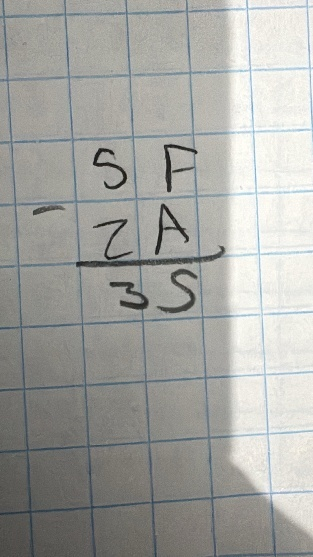 5 F
- 2 A
3 5